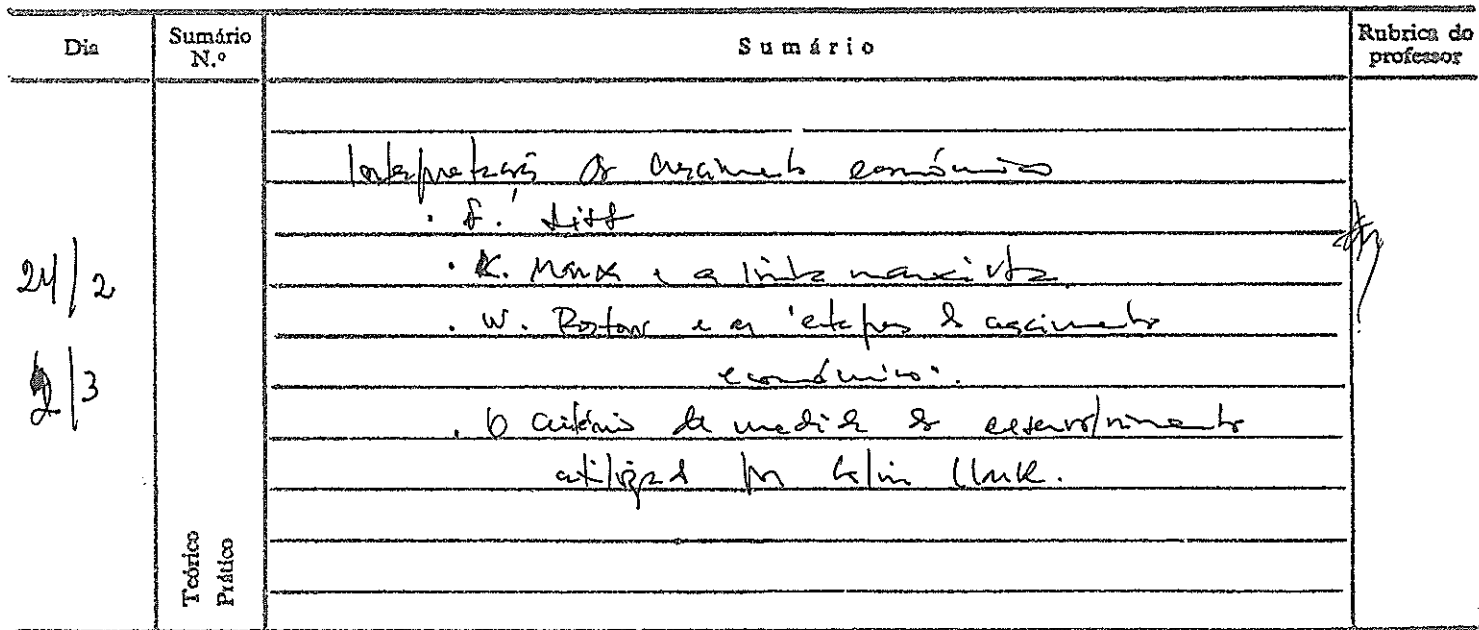 Dia
Sumário
N.º
Sumário
Rubrica do
professor
24/2
2/3
Interpretação do crescimento económico
. F. List
. K. Marx e a linha marxista.
. W. Rostow e as 'etapas do crescimento
económico'.
. O critério de medida do desenvolvimento
utilizado por Colin Clark.
Teórico
Prático